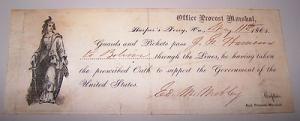 Office Provost Marshal,
Harper's Ferry, Va., Aug 11th 1864
Guards and Pickets pass J. H.
to Bolivar through the Lines, he having taken
the prescribed Oath to support the Government of the
United States.